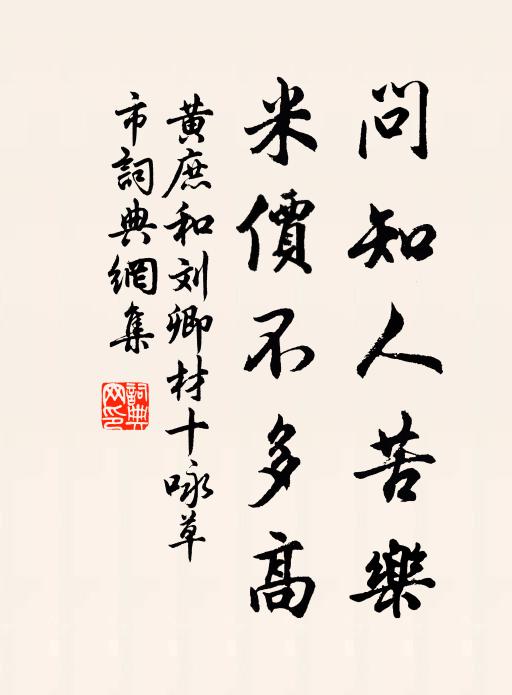 問知人苦樂
米價不多高
黄庶和刘卿材十咏草
市詞典網集
詞典网印